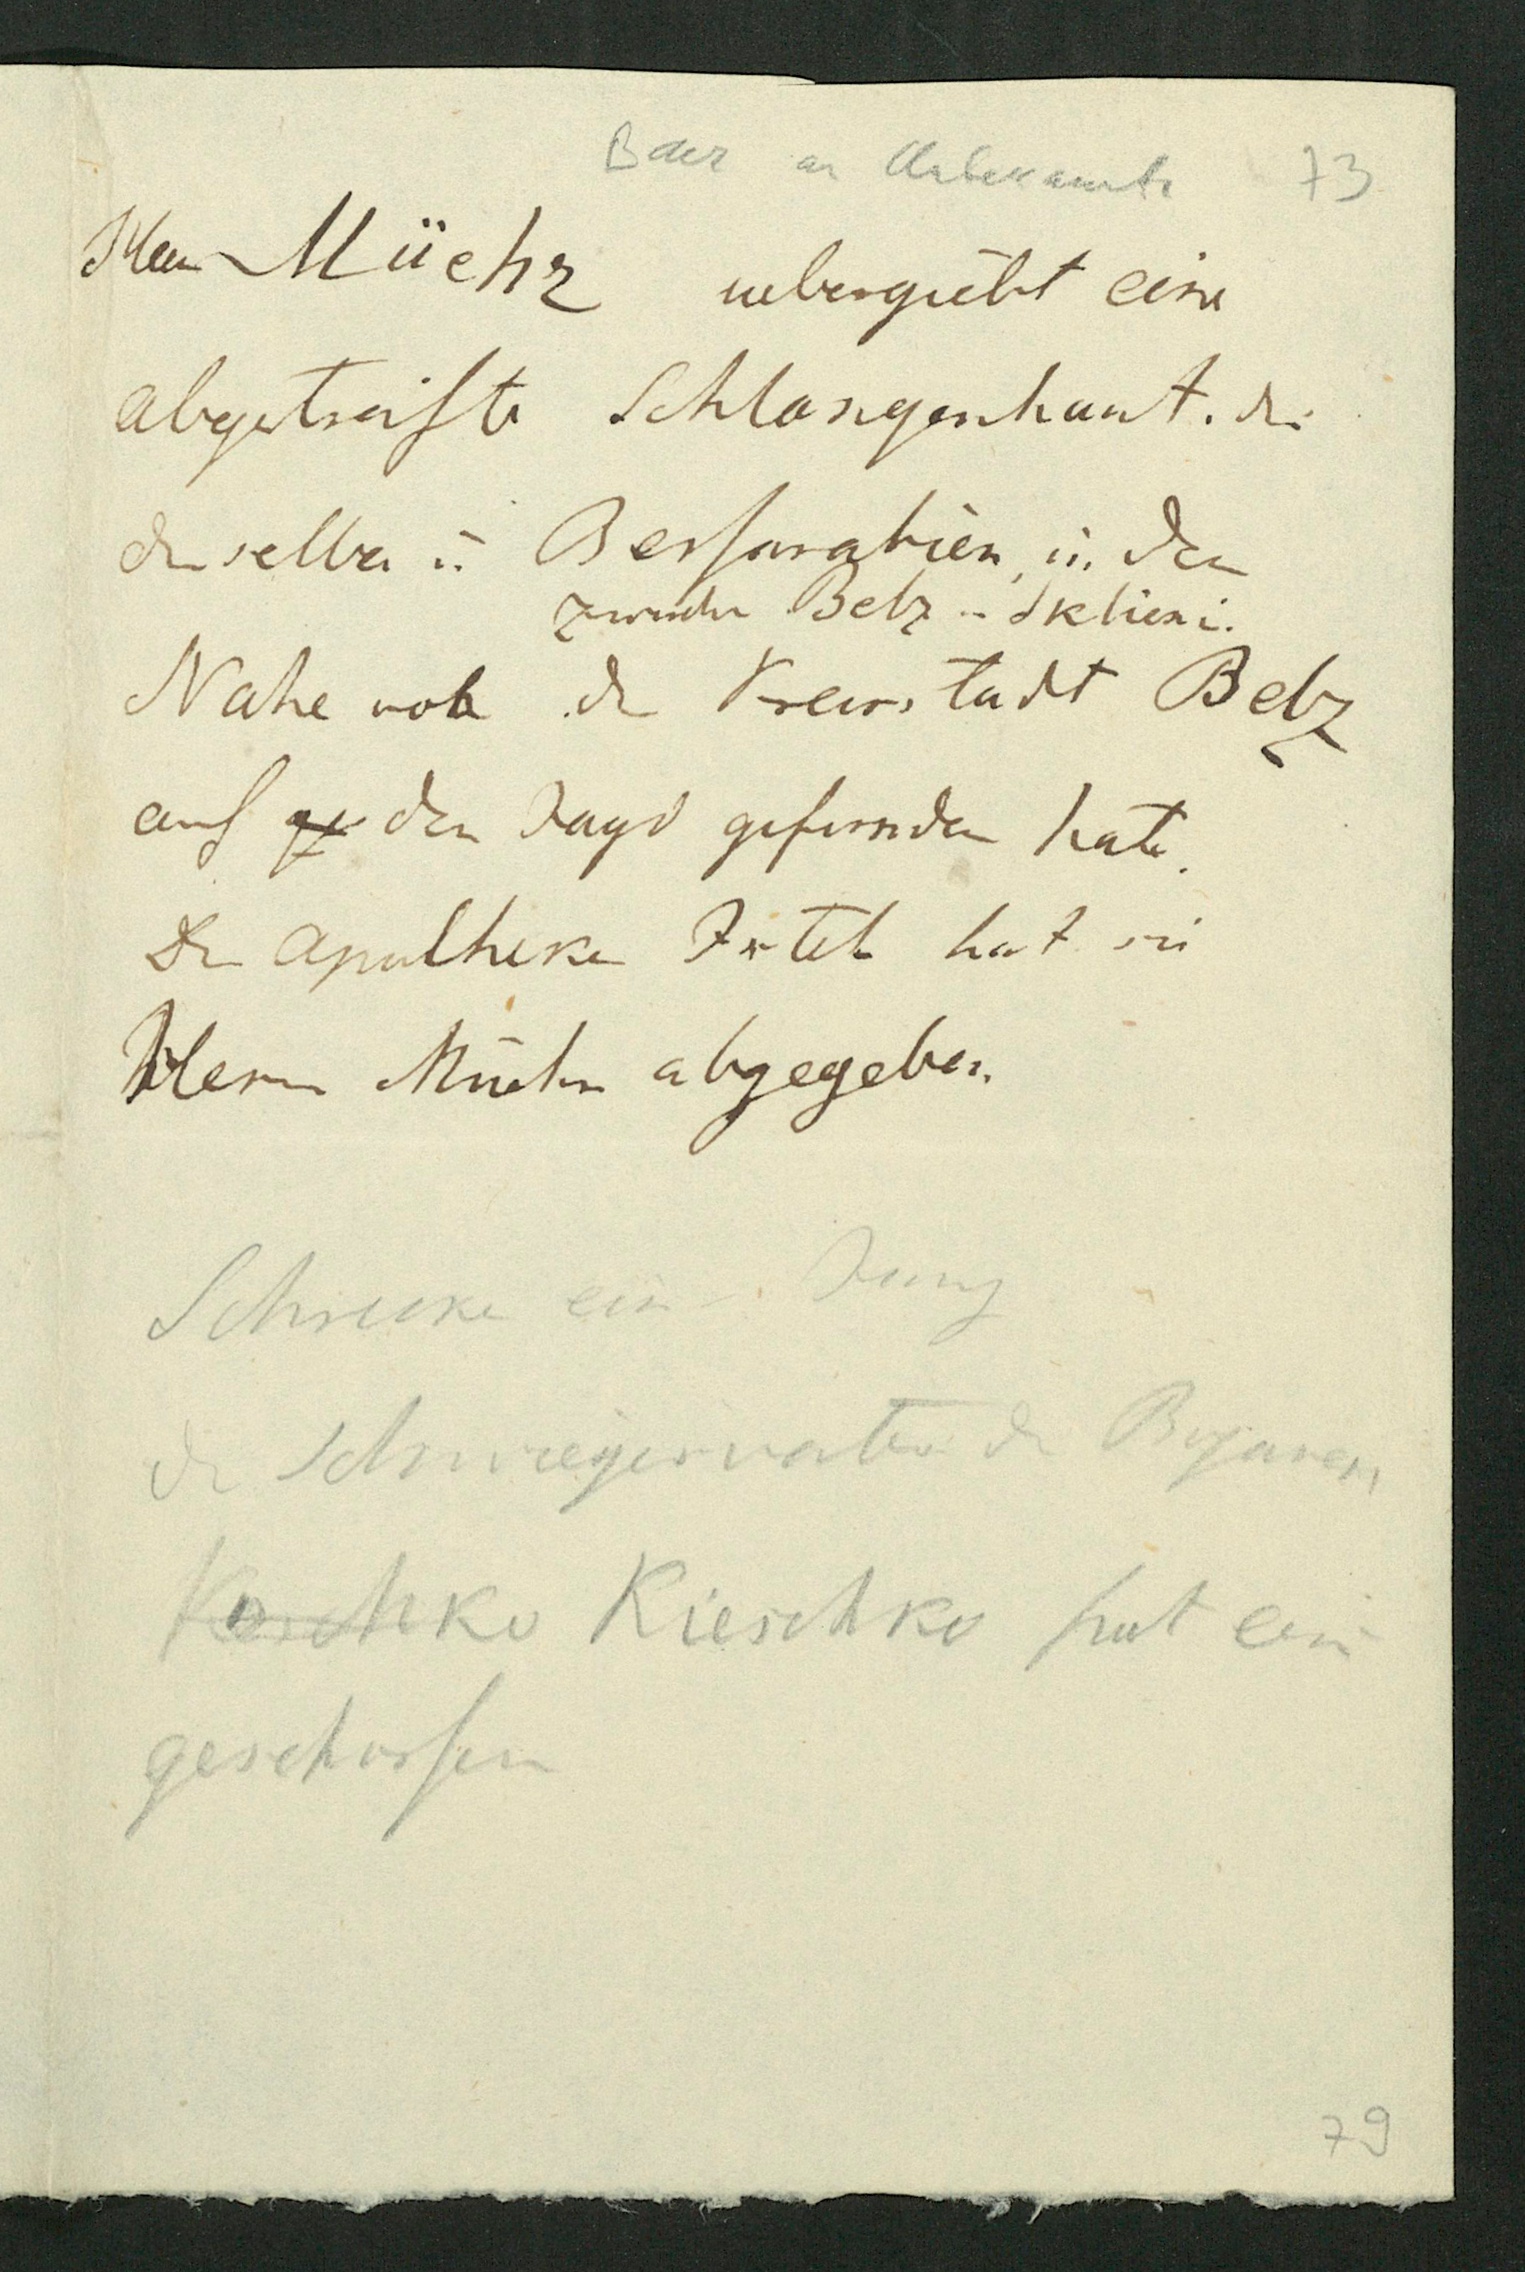 Baer an Unbekannt 73
Herr Müehr uebergiebt eine
abgestreifte Schlangenhaut. die
derselbe in Bessarabien, in der
zwischen Belz u. Sklieni.
Nahe von der Kreisstadt Belz
auf der Jagd gefunden hat.
Der Apotheker hat sie
Herrn Müehr abgegeben.
Schrecke ein Jung
der Schwiegervater des Bojaren
Koschko Kieschko hat ein
geschossen
79